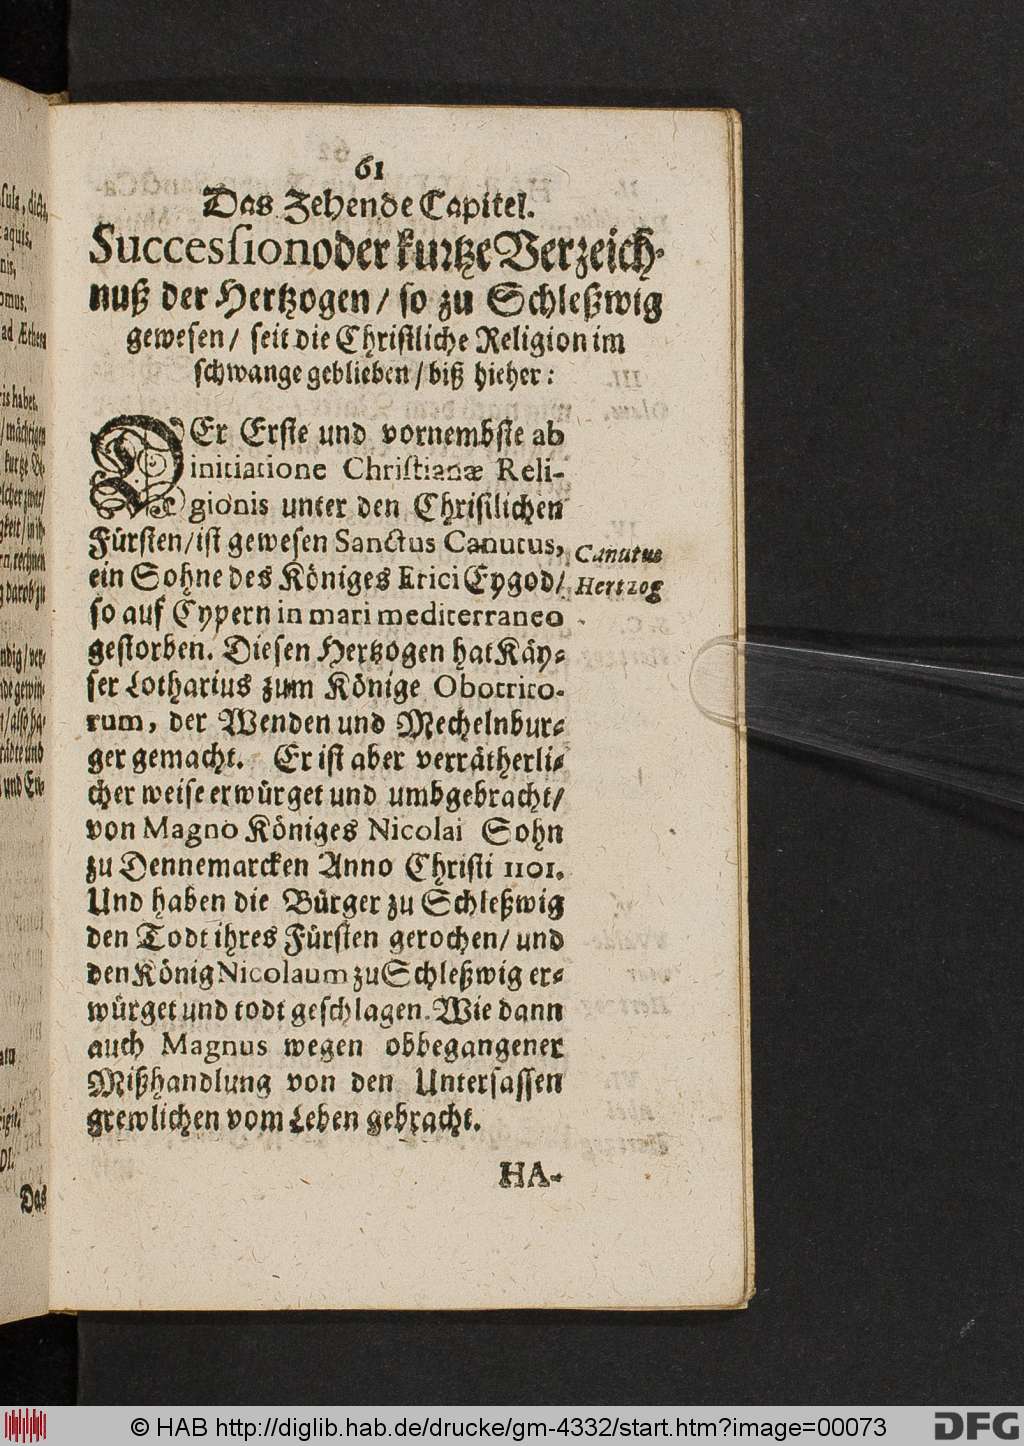 61
Das Zehende Capitel.
Succession oder kurtze Verzeich-
nuß der Hertzogen / so zu Schleßwig
gewesen / seit die Christliche Religion im
schwange geblieben / biß hieher:
DEr Erste und vornembste ab
initiatione Christianæ Reli-
gionis unter den Christlichen
Fürsten / ist gewesen Sanctus Canutus,
ein Sohne des Königes Erici Eygod /
so auf Cypern in mari mediterraneo
gestorben. Diesen Hertzogen hat Käy-
ser Lotharius zum Könige Obotrito-
rum, der Wenden und Mechelnbur-
ger gemacht. Er ist aber verrätherli-
cher weise erwürget und umbgebracht /
von Magno Königes Nicolai Sohn
zu Dennemarcken Anno Christi 1101.
Und haben die Bürger zu Schleßwig
den Todt ihres Fürsten gerochen / und
den König Nicolaum zu Schleßwig er-
würget und todt geschlagen. Wie dann
auch Magnus wegen obbegangener
Mißhandlung von den Untersassen
grewlichen vom Leben gebracht.
Canutus
Hertzog
HA-
Das
© HAB http://diglib.hab.de/drucke/gm-4332/start.htm?image=00073
DFG